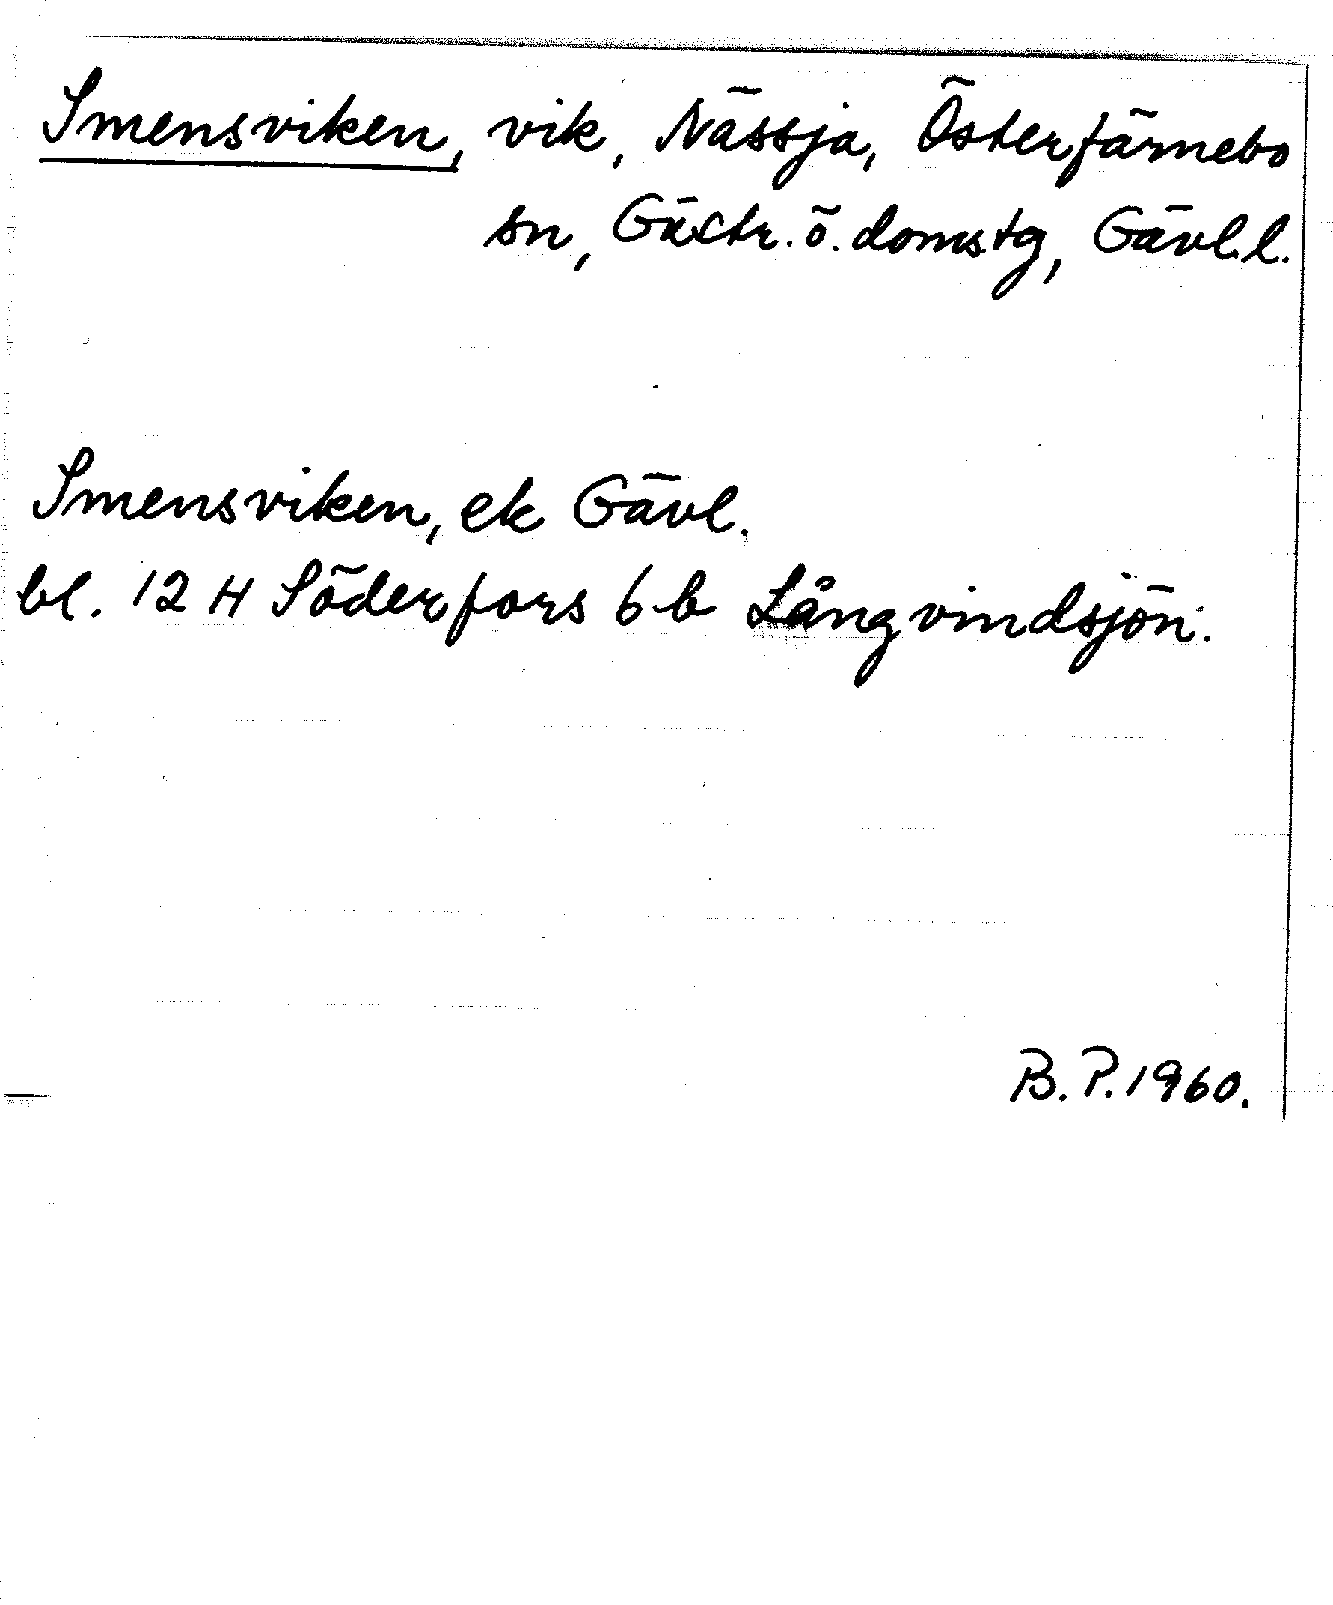 Smensviken, vik, Nässja, Österfärnebo
sn, Gästr. ö. domstg, Gävl.l.
Smensviken, ek Gävl.
bl. 12 H Söderfors 6 b Långvindsjön.
B. P. 1960.